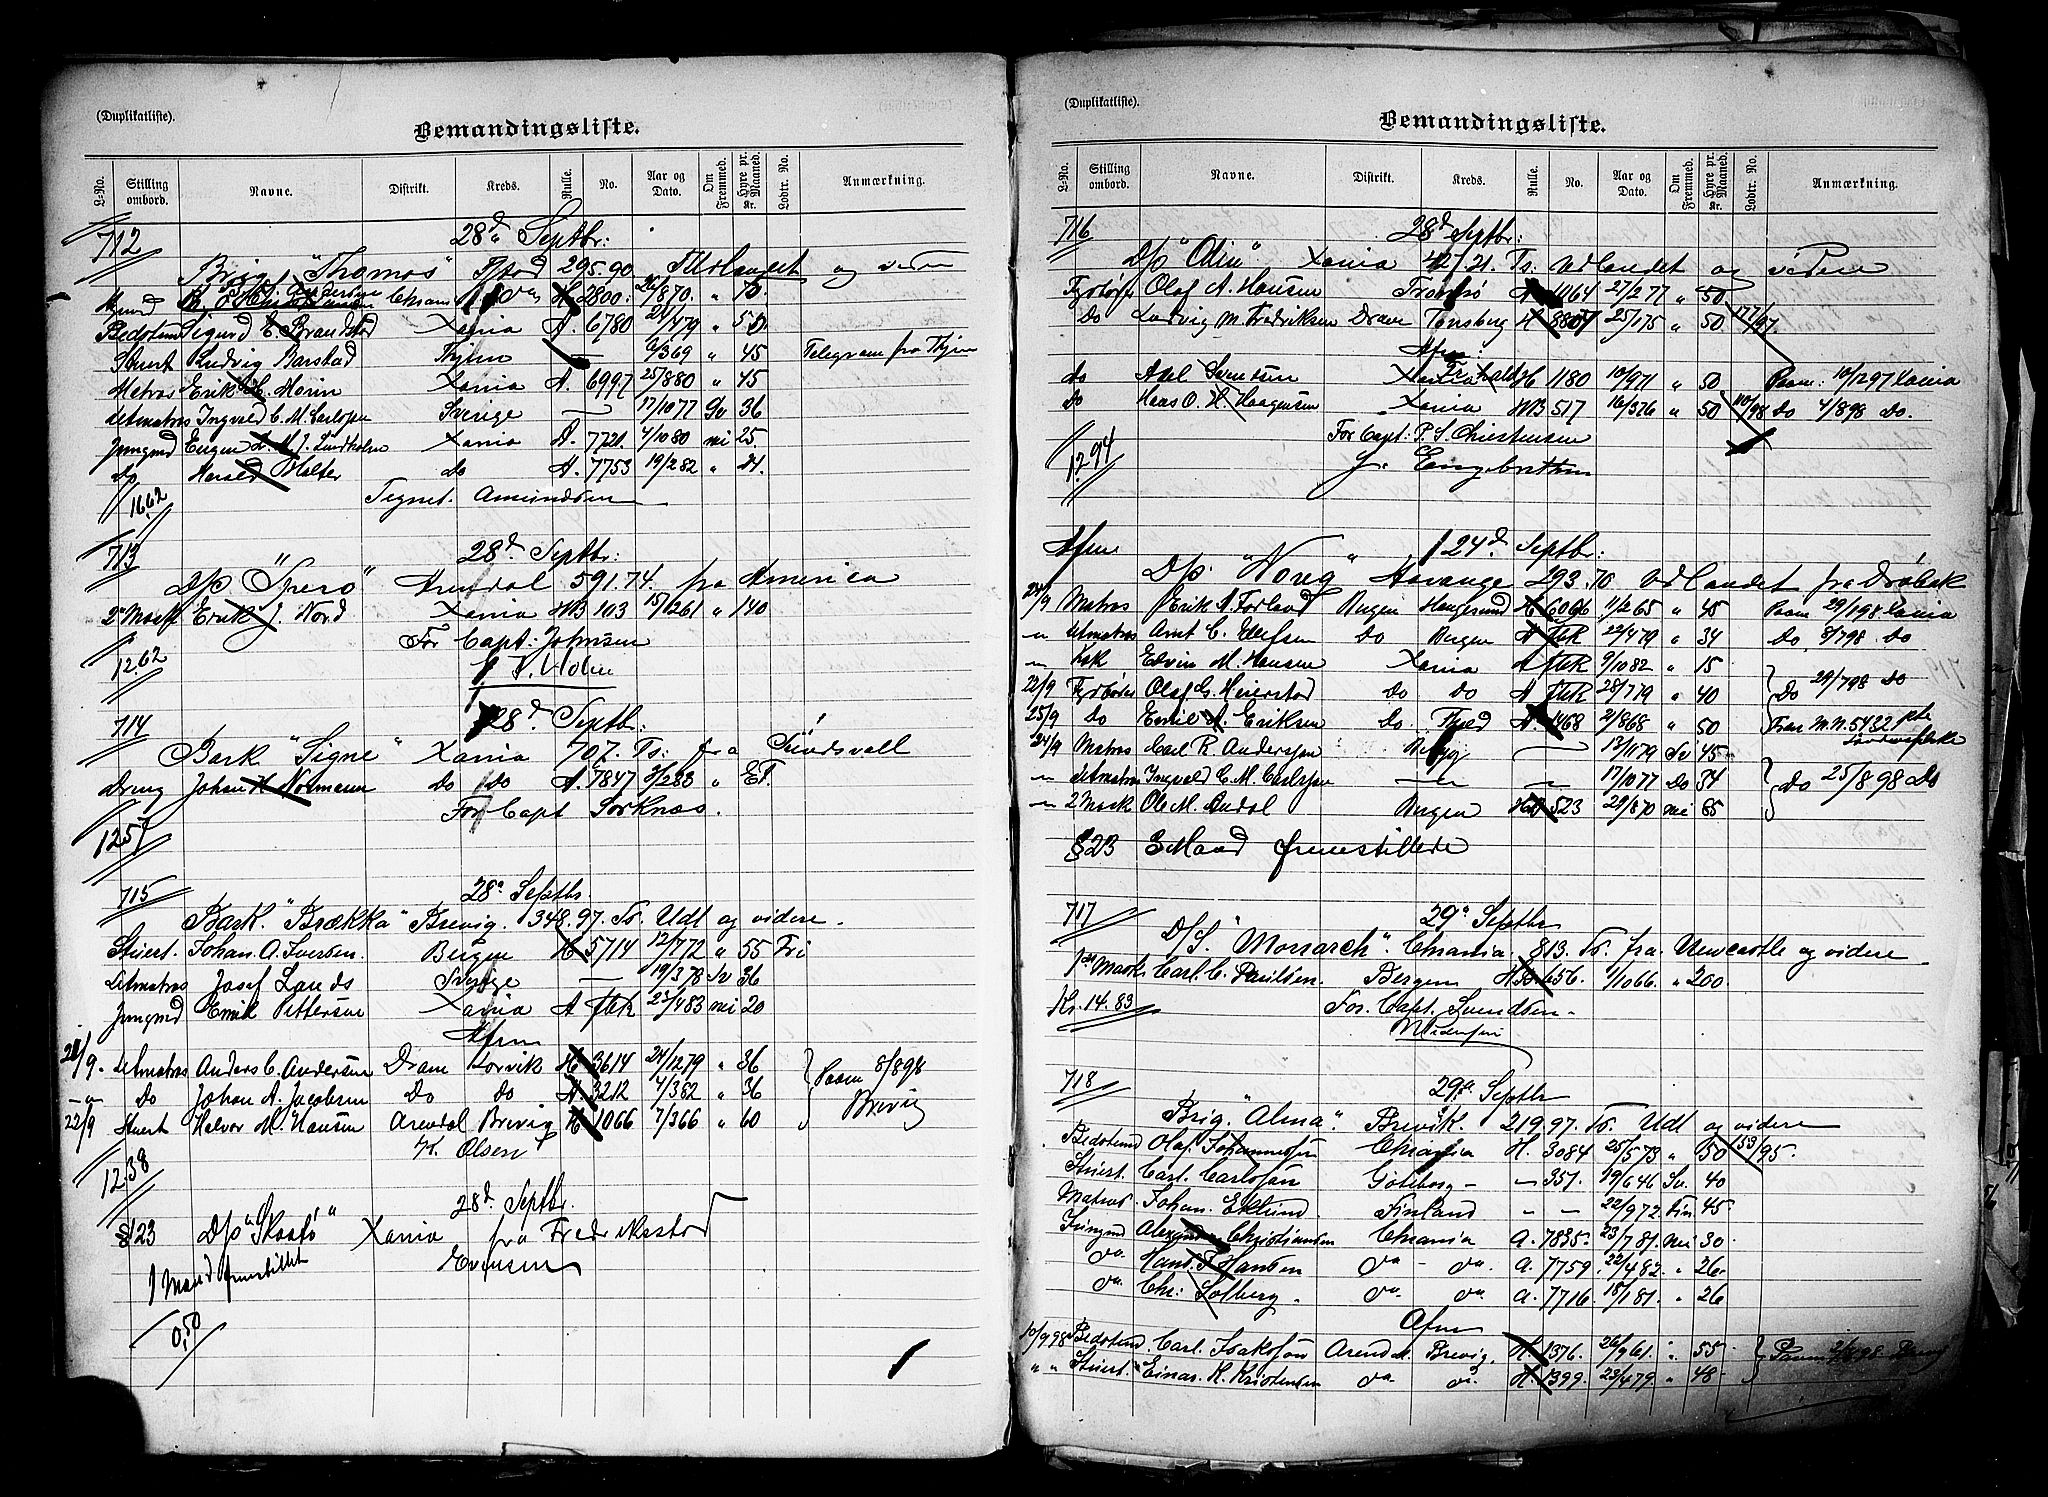 (Duplikatliste).
Bemandingsliste.
L-No. Stilling ombord. Navne. Distrikt. Kreds. Rulle. No. Aar og Dato. Om Fremmed. Hyre pr. Maaned. Kr. Lodtr. No. Anmærkning.
712 28d Septbr:
Brig "Thomas" 295.90 Til Udlandet og videre
2800
Bedstemd Sigurd E. Brandstad Xania A. 6780 /479 " 50
Stuert Ludvig Barstad Hjem — 6/369 " 45 Telegram fra Hjem
Matros Erik Morin Xania A. 6997 25/880 " 45
Letmatros Ingvald C. M. Carlssen Sverige — 17/1077 Sv 36
Jungmd Eugen J. Lindholm Xania A. 7721 4/1080 nei 25
Do Harald Holter do A. 7753 19/282 " 21
16.62 Tegnet. Amundsen
713 28d Septbr:
D/s "Spero" Arendal 591.74 fra America
2den Mask Erik J. Nord Xania MB 103 15/1261 " 140
For Capt: Johnsen
12.62
714 28d Septbr:
Bark "Signe" Xania 707. Ts: fra Sundsvall
Dreng Johan H Normann do do A. 7847 3/283 " ET.
For Capt Sorknæs.
12.57
715 28d Septbr
Bark "Brække" Brevig. 348.97. To. Udl og videre.
Stuert. Johan A. Iversen. Bergen H 5714 12/772 " 55 Fri
Letmatros Josef Lands Sverige — 19/378 Sv 36
Jungmd Emil Pettersen Xania A fik 23/483 nei 20
Afm
21/9. Letmatros Anders C. Andersen Dram Horvik H 3614 24/1279 " 36 Paam 8/898 Brevig
— Do Johan A. Jacobsen Do do A 3212 4/382 " 36
22/9 Stuert Halvor M. Hansen Arendal Brevig H 1066 7/366 " 60
12.38 Olsen
28d Septbr.
§ 23 D/s "Skatø" Xania fra Fredriksstad
1 Mand fremstillet Evensen
0,50
(Duplikatliste).
Bemandingsliste.
L-No. Stilling ombord. Navne. Distrikt. Kreds. Rulle. No. Aar og Dato. Om Fremmed. Hyre pr. Maaned. Kr. Lodtr. No. Anmærkning.
716 28d Septbr:
D/s "Odin" Xania Ts: Udlandet og videre
Fyrbøder Olaf A. Hansen Tromsø A 1064 27/277 " 50
Do Ludvig M. Fredriksen Dram Tønsberg H 25/175 " 50 177/97
Afm:
do Axel Svendsen H 1180 10/971 " 50 Paam: 10/1297 Xania
Do Hans O. H. Haagensen Xania MB 517 16/376 " 50 10/98 Do 4/898 Do.
For Capt: P. S. Christensen
12.94 Engebretsen
Afm 24d Septbr:
D/s "Norig" 293.70 Udlandet fra Drøbak
24/9 Matros Erik A. Forland Bergen Haugesund H 6066 11/265 " 45 Paam 29/198 Xania
— Letmatros Arnt C. Ellefsen Do Bergen A fik 22/479 " 34 Do 8/798 Do
— Kok Edvin M. Hansen Xania A fik 9/1082 " 15
22/9 Fyrbøder Olaf G. Meierstad Do Do A fik 28/779 " 40 Do 29/798 Do
25/9 Do Emil A. Eriksen Do A. 1468 2/868 " 50
24/9 Matros Carl R. Andersen — 13/1179 Sv 45
— Letmatros Ingvald C. M. Carlssen — — 17/1077 Do 34 Do 25/898 Do
— 2 Mask Ole M. Aadal Bergen 523 29/870 nei 65
§ 23 3 Mand fremstillede
717 29d Septbr
D/S. "Monarch". Chrania 813. To. fra Newcastle og videre
1ste Mask. Carl. C. Paulsen. Bergen HB. 656. 1/1066. " 200
Kr. 14.83 For. Capt. Svendsen.
718 29d Septbr
Brig. "Alma". Brevik. 219.97. To. Udl og videre
Bedstemd Olaf. Johannesen Chrania H. 3084 25/573 " 50 159/95.
Stuert. Carl. Carlsson Göteborg — — 357. 19/646 Sv. 40
Matros. Johan. Eklund. Finland — — 22/972. Fin 45.
Jungmd Alexander Christiansen Chrania A. 7835. 23/781. nei 30
do Hans. F. Hansen do — do. A. 7759. 22/482. " 26.
do. Chr: Solberg. do. do. A. 7716. 18/181. " 26
Afm
10/9 98 Bedstemd. Carl. Isaksson Arendal. Brevig. H. 1376. 26/961. " 55
" " Stuert. Einar. K. Kristensen do. do H. 1399. 23/479. " 48